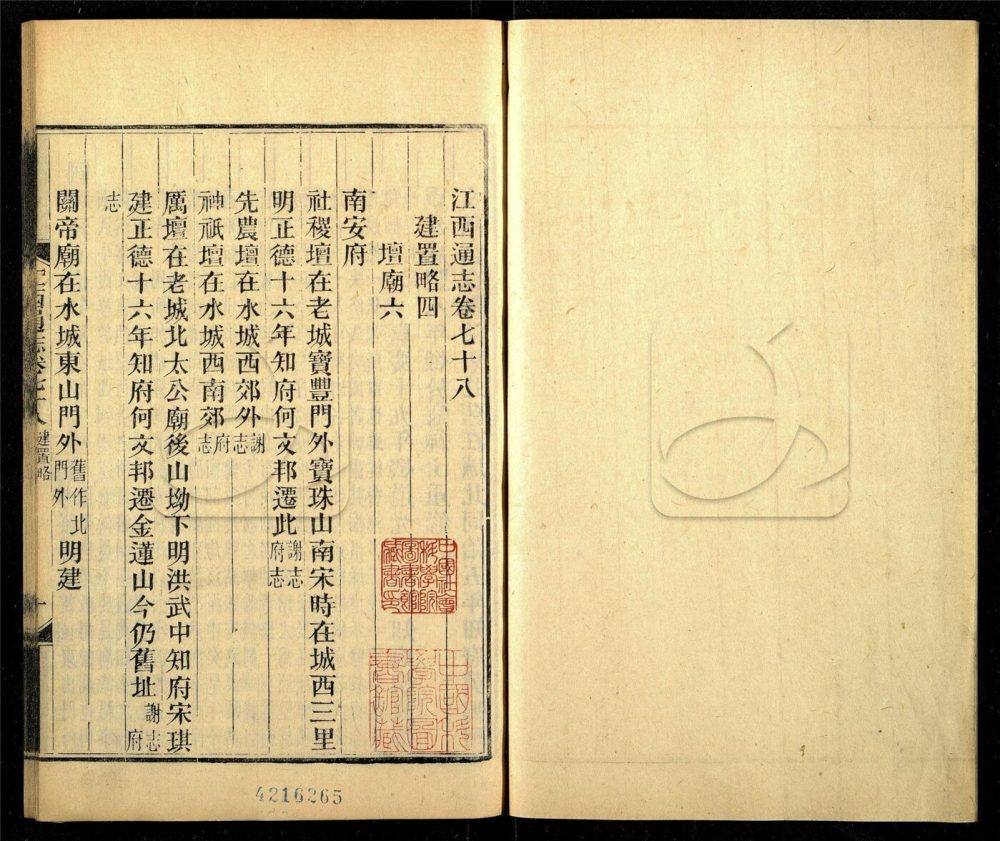 江西通志卷七十八
建置略四
壇廟六
南安府
社稷壇在老城寶豐門外寶珠山南宋時在城西三里
明正德十六年知府何文邦遷此謝志府志
先農壇在水城西郊外謝志
神祇壇在水城西南郊府志
厲壇在老城北太公廟後山坳下明洪武中知府宋琪
建正德十六年知府何文邦遷金蓮山今仍舊址謝志府
志
關帝廟在水城東山門外舊作北門外明建
江西通志卷七十八
建置略
一
中國社會科學院圖書館藏書印
中國科學院圖書館藏
4216265